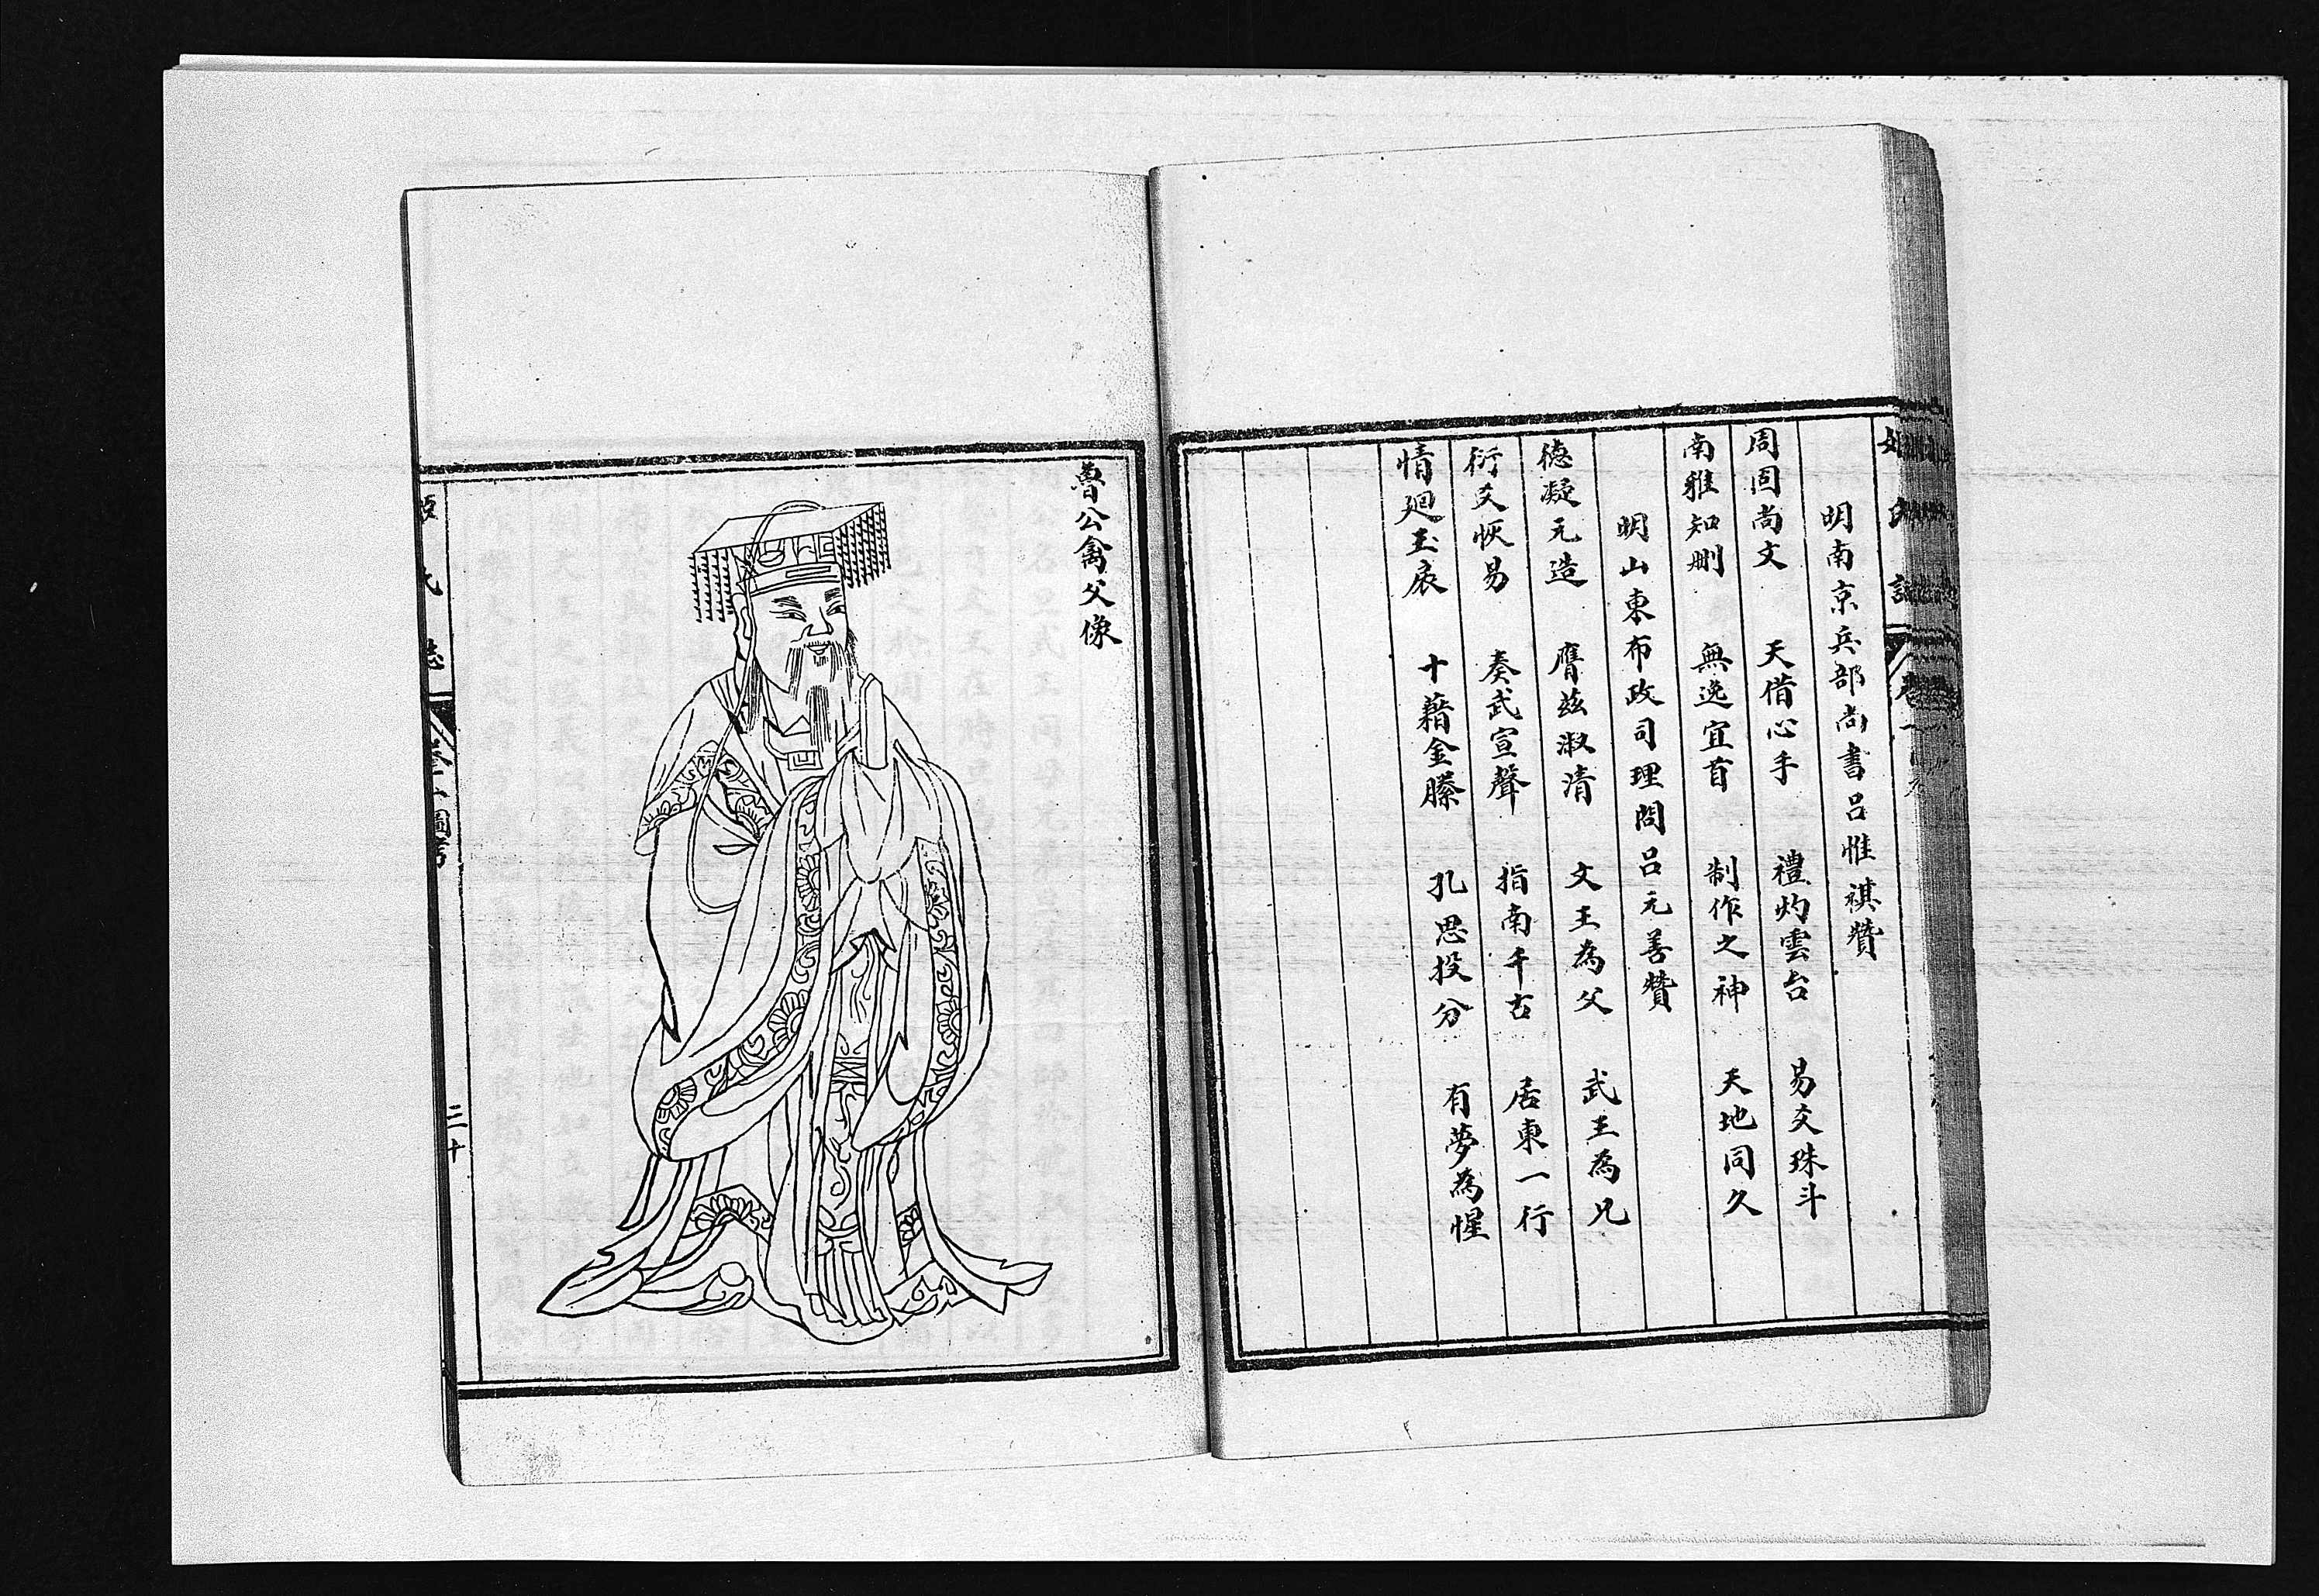 明南京兵部尚書呂惟祺贊
周因尚文　天借心手　禮灼雲台　易爻珠斗
南雅知刪　無逸宜首　制作之神　天地同久
明山東布政司理問呂元善贊
德凝元造　膺茲淑清　文王為父　武王為兄
衍爻恢易　奏武宣聲　指南千古　居東一行
情廻玉扆　十藉金縢　孔思投分　有夢為惺
魯公禽父像
氏　志　卷一　圖考　二十